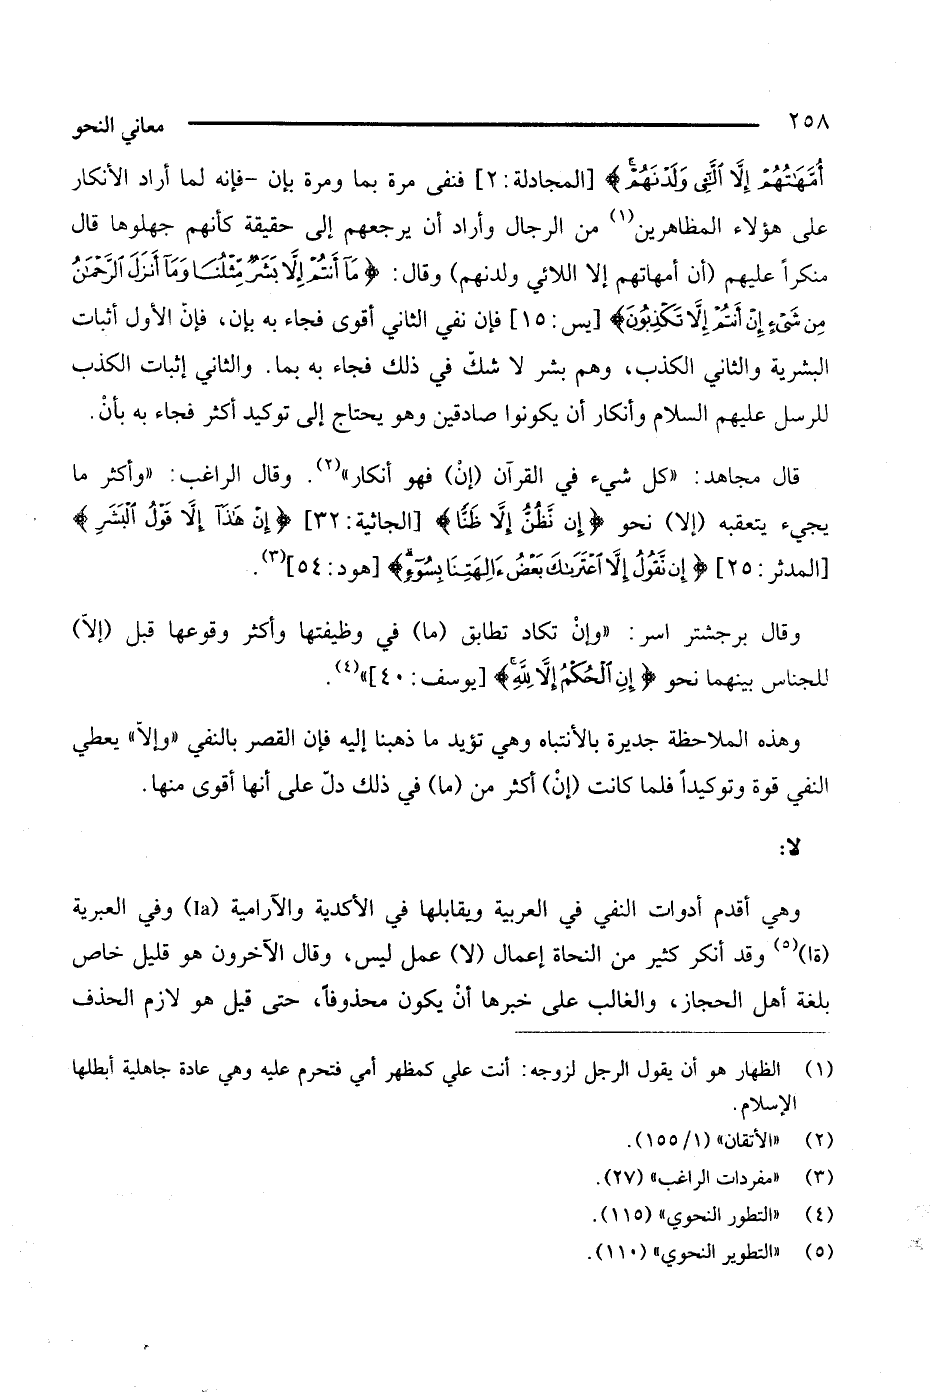 ٢٥٨ معاني النحو
أُمَّهَٰتُهُمْ إِلَّا ٱلَّٰٓـِٔى وَلَدْنَهُمْ ۚ﴾ [المجادلة: ٢] فنفى مرة بما ومرة بإن -فإنه لما أراد الأنكار
على هؤلاء المظاهرين(١) من الرجال وأراد أن يرجعهم إلى حقيقة كأنهم جهلوها قال
منكراً عليهم (أن أمهاتهم إلا اللائي ولدنهم) وقال: ﴿ مَآ أَنتُمْ إِلَّا بَشَرٌ مِّثْلُنَا وَمَآ أَنزَلَ ٱلرَّحْمَٰنُ
مِن شَىْءٍ إِنْ أَنتُمْ إِلَّا تَكْذِبُونَ﴾ [يس: ١٥] فإن نفي الثاني أقوى فجاء به بإن، فإنّ الأول أثبات
البشرية والثاني الكذب، وهم بشر لا شكّ في ذلك فجاء به بما. والثاني إثبات الكذب
للرسل عليهم السلام وأنكار أن يكونوا صادقين وهو يحتاج إلى توكيد أكثر فجاء به بأنْ.
قال مجاهد: «كل شيء في القرآن (إنْ) فهو أنكار»(٢). وقال الراغب: «وأكثر ما
يجيء يتعقبه (إلا) نحو ﴿ إِن نَّظُنُّ إِلَّا ظَنًّا﴾ [الجاثية: ٣٢] ﴿ إِنْ هَٰذَآ إِلَّا قَوْلُ ٱلْبَشَرِ ﴾
[المدثر: ٢٥] ﴿ إِن نَّقُولُ إِلَّا ٱعْتَرَىٰكَ بَعْضُ ءَالِهَتِنَا بِسُوٓءٍ ۗ﴾ [هود: ٥٤](٣).
وقال برجشتر اسر: «وإنْ تكاد تطابق (ما) في وظيفتها وأكثر وقوعها قبل (إلاّ)
للجناس بينهما نحو ﴿ إِنِ ٱلْحُكْمُ إِلَّا لِلَّهِ ۚ﴾ [يوسف: ٤٠]»(٤).
وهذه الملاحظة جديرة بالأنتباه وهي تؤيد ما ذهبنا إليه فإن القصر بالنفي «وإلاّ» يعطي
النفي قوة وتوكيداً فلما كانت (إنْ) أكثر من (ما) في ذلك دلّ على أنها أقوى منها.
لا:
وهي أقدم أدوات النفي في العربية ويقابلها في الأكدية والآرامية (Ia) وفي العبرية
(ةا)(٥) وقد أنكر كثير من النحاة إعمال (لا) عمل ليس، وقال الآخرون هو قليل خاص
بلغة أهل الحجاز، والغالب على خبرها أنْ يكون محذوفاً، حتى قيل هو لازم الحذف
(١) الظهار هو أن يقول الرجل لزوجه: أنت علي كمظهر أمي فتحرم عليه وهي عادة جاهلية أبطلها
الإسلام.
(٢) «الأتقان» (١/ ١٥٥).
(٣) «مفردات الراغب» (٢٧).
(٤) «التطور النحوي» (١١٥).
(٥) «التطوير النحوي» (١١٠).